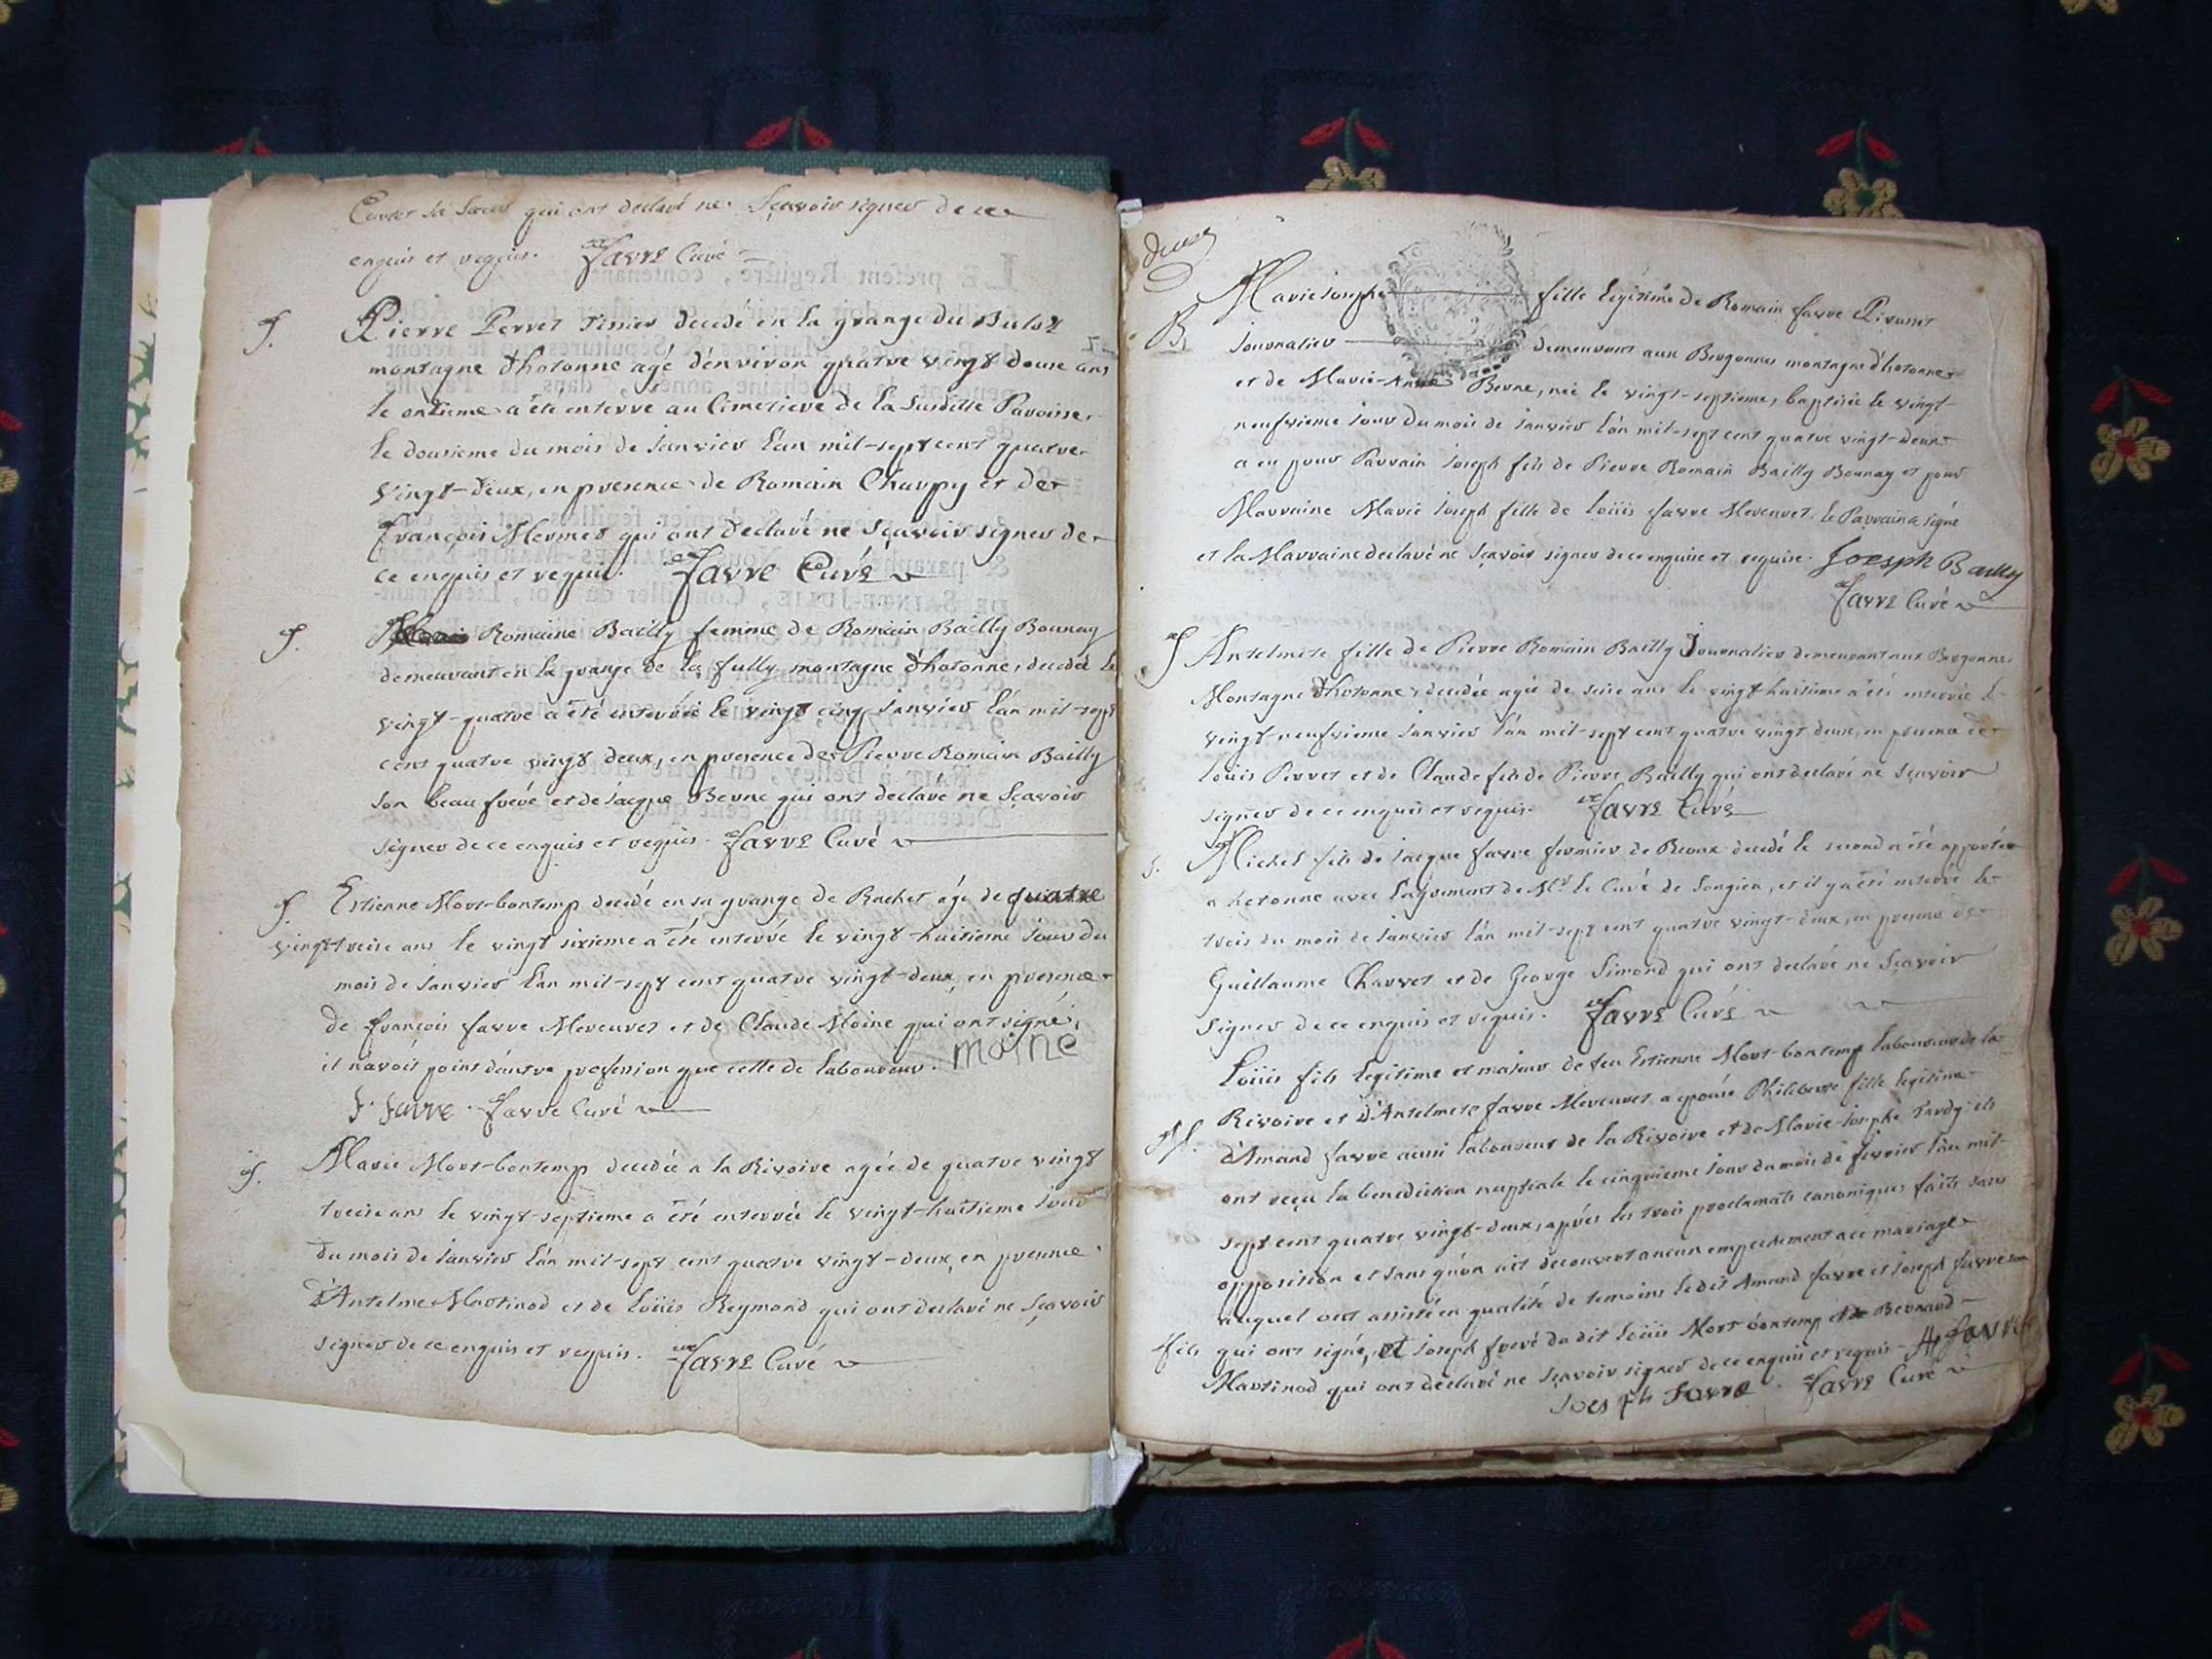 sa Sœur qui ont declaré ne Sçavoir signer de ce
enquis et requis. Favre Curé
S.
Pierre Perret decedé en la grange du
montagne d'hotonne agé d'environ quatre vingt douze ans
le onzieme a été enterré au Cimetiere de la Susditte Paroisse
le douzieme du mois de Janvier l'an mil-sept cent quatre
vingt-deux, en presence de Romain Charpy et de
François Mermet qui ont declaré ne sçavoir signer de
ce enquis et requis. Favre Curé
S.
Romaine Bailly femme de Romain Bailly Bounay
demeurant en la grange de la fully montagne d'hotonne, decedée le
vingt-quatre a été enterrée le vingt cinq Janvier l'an mil-sept
cent quatre vingt deux, en presence de Pierre Romain Bailly
son beau frere et de Jacque Berne qui ont declaré ne Sçavoir
signer de ce enquis et requis. Favre Curé
S.
Estienne Mort-bontemp decedé en sa grange de Rachet agé de quatre
vingt treize ans le vingt sixieme a été enterré le vingt-huitieme Jour du
mois de Janvier l'an mil-sept cent quatre vingt-deux, en presence
de François Favre Mereuvet et de Claude Moine qui ont signé,
il n'avoit point d'autre profession que celle de laboureur. moine
F. Favre. Favre Curé
S.
Marie Mort-bontemp decedée a la Rivoire agée de quatre vingt
treize ans le vingt-septieme a été enterrée le vingt-huitieme Jour
du mois de Janvier l'an mil-sept cent quatre vingt-deux, en presence
d'Antelme Martinod et de Loüis Reymond qui ont declaré ne Sçavoir
signer de ce enquis et requis. Favre Curé
deux
B.
Marie Josephe fille legitime de Romain Favre
Journalier demeurant aux Bergonnes montagne d'hotonne
et de Marie-Anne Berne, née le vingt-septieme, baptisée le vingt
neufvieme Jour du mois de Janvier l'an mil-sept cent quatre vingt-deux
a eu pour Parrain Joseph fils de Pierre Romain Bailly Bounay et pour
Marraine Marie Joseph fille de Loüis Favre Mereuvet. le Parrain a signé
et la Marraine declaré ne sçavoir signer de ce enquise et requise. Joesph Bailly
Favre Curé
S
Antelmete fille de Pierre Romain Bailly Journalier demeurant aux Bergonnes
Montagne d'hotonne, decedée agée de seize ans le vingt-huitieme a été enterrée le
vingt-neufvieme Janvier l'an mil-sept cent quatre vingt deux, en presence de
Loüis Perret et de Claude fils de Pierre Bailly qui ont declaré ne sçavoir
signer de ce enquis et requis. Favre Curé
S.
Michel fils de Jacque Favre fermier de decedé le second a été apporté
a hotonne avec l'agrement de Mr. le Curé de Songieu, et il y a été enterré le
trois du mois de Janvier l'an mil-sept cent quatre vingt-deux, en presence de
Guillaume Charvet et de George Simond qui ont declaré ne Sçavoir
signer de ce enquis et requis. Favre Curé
Loüis fils legitime et majeur de feu Estienne Mort-bontemp laboureur de la
Rivoire et d'Antelmete Favre Mereuvet a epousé Philiberte fille legitime
M.
d'Amand Favre aussi laboureur de la Rivoire et de Marie-Josephe Tardy: ils
ont reçu la benediction nuptiale le cinquieme Jour du mois de fevrier l'an mil-
sept cent quatre vingt-deux, après les trois proclamats canoniques faits sans
opposition et sans qu'on ait decouvert aucun empechement a ce mariage
auquel ont assisté en qualité de temoins ledit Amand Favre et Joseph Favre son
fils qui ont signé, et Joseph frere du dit Loüis Mort bontemp et Bernard
Martinod qui ont declaré ne sçavoir signer de ce enquis et requis A favre
Joesph favre. Favre Curé